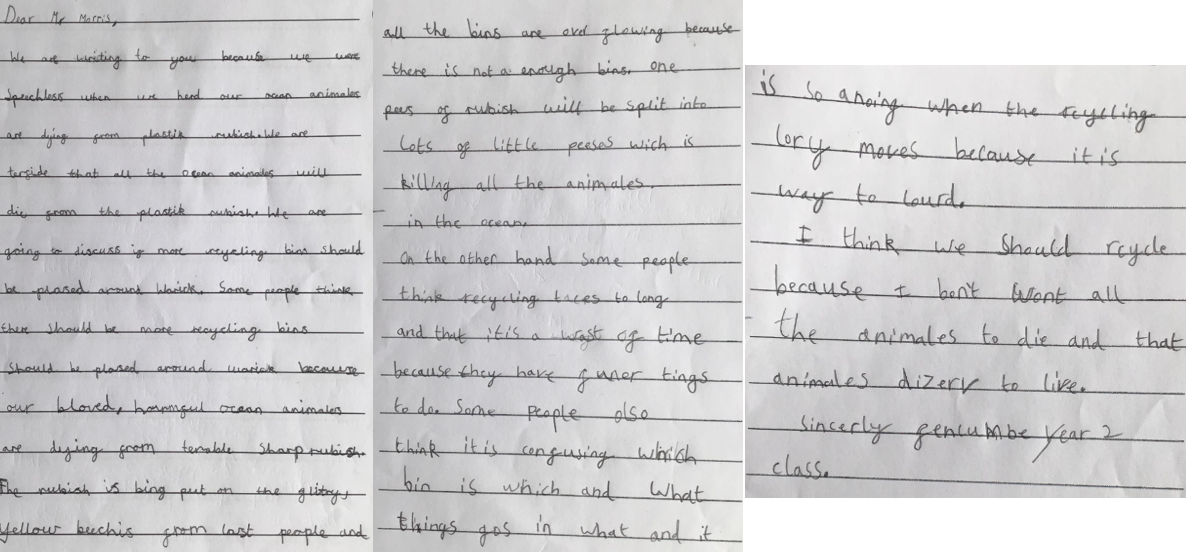 Dear Mr Morris,
We are writing to you because we were
speechless when we herd our ocean animales
are dying from plastik rubish. We are
terfide that all the ocean animales will
die from the plastik rubish. We are
going to discuss if more recycling bins should
be plased around Warick. Some people think
there should be more recycling bins
should be plased around warick because
our bloved, harmful ocean animales
are dying from terrable sharp rubish.
The rubish is bing put on the glitry,
Yellow beechis from last people and
all the bins are over flowing because
there is not a enough bins. one
pees of rubish will be split into
lots of little peeses wich is
killing all the animales.
in the ocean.
On the other hand some people
think recycling taces to long
and that it is a wast of time
because they have funer tings
to do. Some people also
think it is confusing which
bin is which and what
things gos in what and it
is so anoing when the rcycling
lory moves because it is
way to lourd.
I think we should rcycle
because I bon't wont all
the animales to die and that
animales dizerv to live.
sincerly year 2
class.